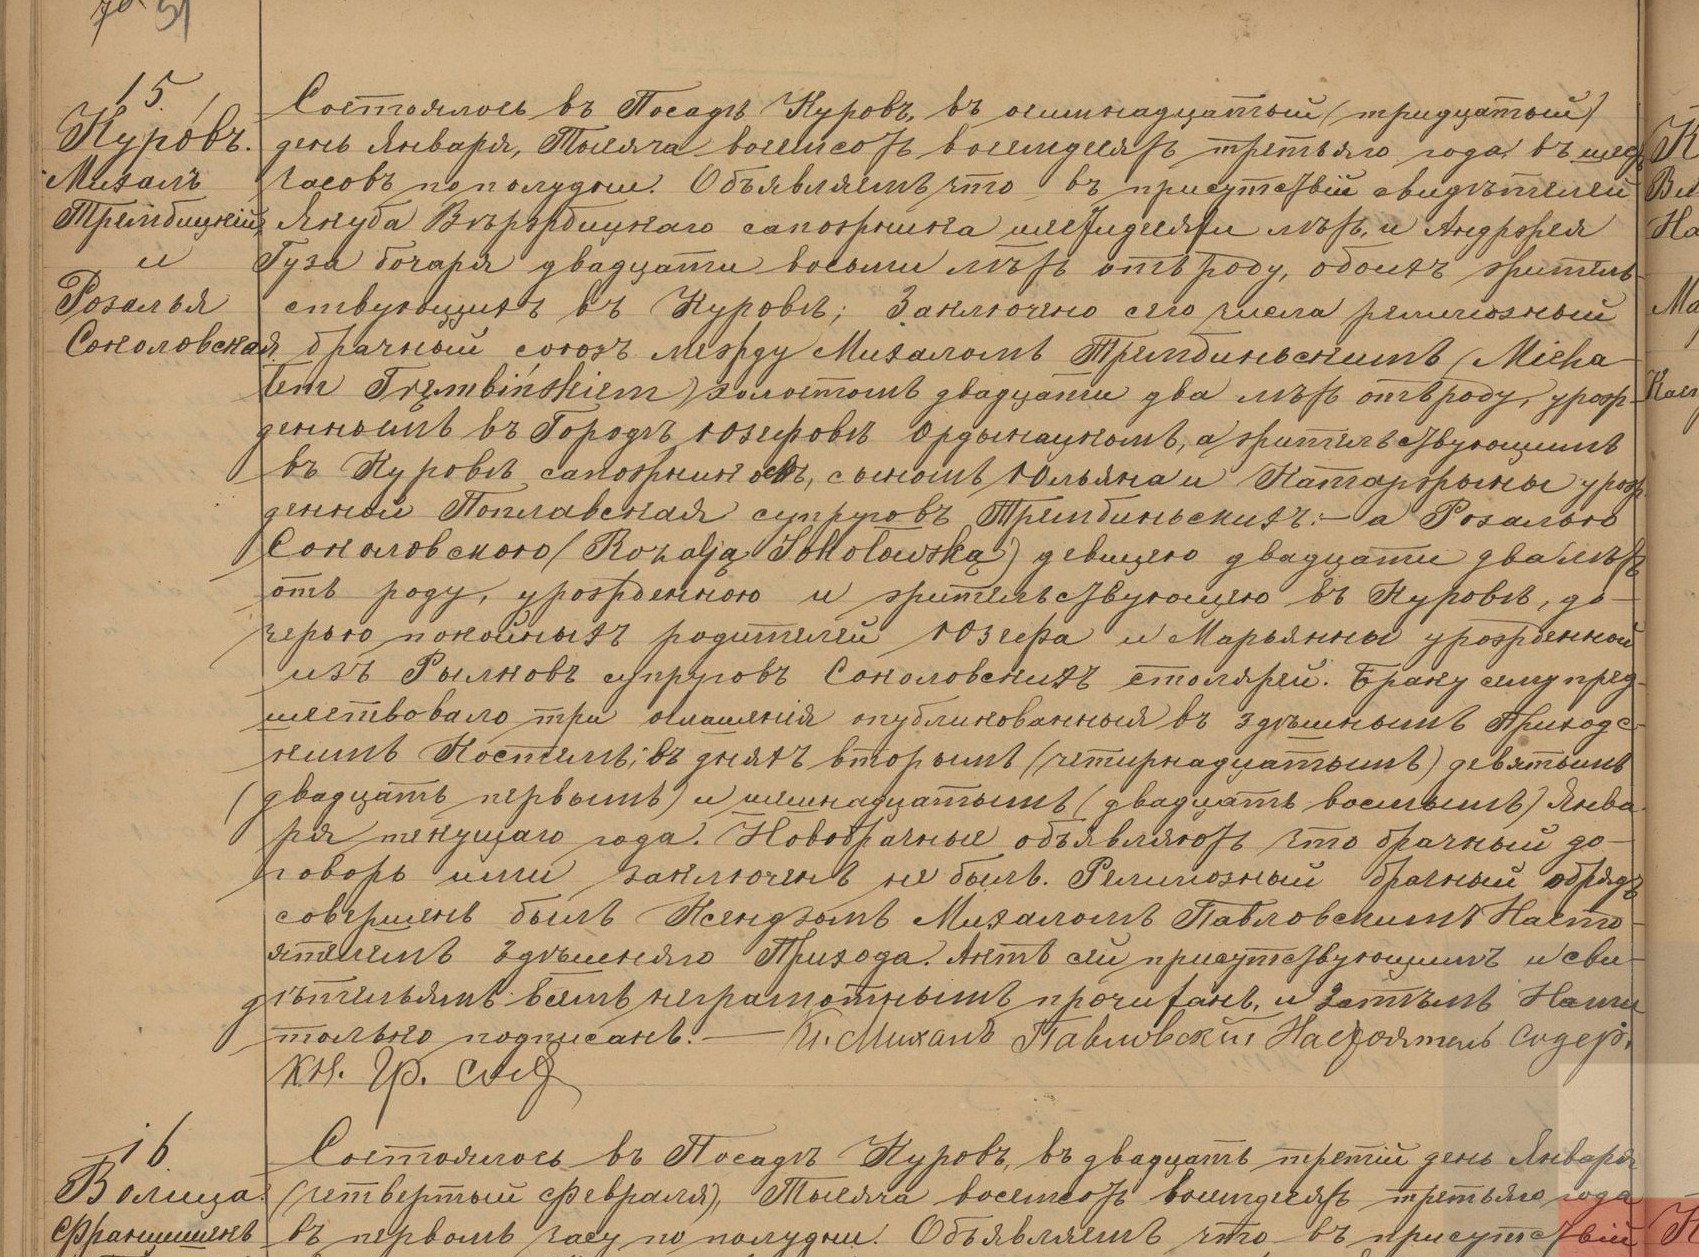 51
15.
Куровъ.
Михалъ
Трембицкій
и
Розалья
Соколовская
Состоялось въ Посадѣ Куровъ, въ осминадцатый (тридцатый)
день Января, Тысяча восемсотъ восемдесятъ третьяго года въ шес
часовъ по полудни. Объявляемъ что въ присутствіи свидѣтелей
Якуба Вѣржбицкаго сапожника шестидесяти лѣтъ, и Андржея
Гуза бочаря двадцати восьми лѣтъ отъ роду, обоихъ житель-
ствующихъ въ Куровѣ; Заключено сего числа религіозный
брачный союзъ между Михаломъ Трембиньскимъ (Micha-
łem Trembińskiem) холостомъ двадцати два лѣтъ отъ роду, урож-
деннымъ въ Городѣ Юзефовѣ Ордынацкомъ, а жительствующимъ
въ Куровѣ сапожникомъ, сыномъ Юльяна и Катаржыны урож-
денной Поплавская супруговъ Трембиньскихъ:- а Розалью
Соколовскою (Rozalją Sokołowską) девицею двадцати два лѣтъ
отъ роду, урожденною и жительствующею въ Куровѣ, до-
черью покойныхъ родителей Юзефа и Марьянны урожденной
изъ Рылковъ супруговъ Соколовскихъ столярей. Браку сему пред-
шествовало три оглашенія опубликованныя въ здѣшнымъ Приходс-
кимъ Костелѣ, въ дняхъ вторымъ (четырнадцатымъ) девятымъ
(двадцать первымъ) и шешнадцатымъ (двадцать восьмымъ) Янва-
ря текущаго года. Новобрачные объявляютъ что брачный до-
говоръ ими заключенъ не былъ. Религіозный брачный обрядъ
совершенъ былъ Ксендзомъ Михаломъ Павловскимъ Насто-
ятелемъ здѣшняго Прихода. Актъ сей присутствующимъ и сви-
дѣтельямъ всемъ неграмотнымъ прочитанъ, и затѣмъ Нами
только подписанъ. — К. Михалъ Павловскій Настоятель Содер.
кн. Гр. Сост
16
Волица.
Францишекъ
Состоялось въ Посадѣ Куровъ, въ двадцать третій день Января
(четвертый Февраля), Тысяча восемсотъ восемдесятъ третьяго года
въ первомъ часу по полудни. Объявляемъ что въ присутствіи